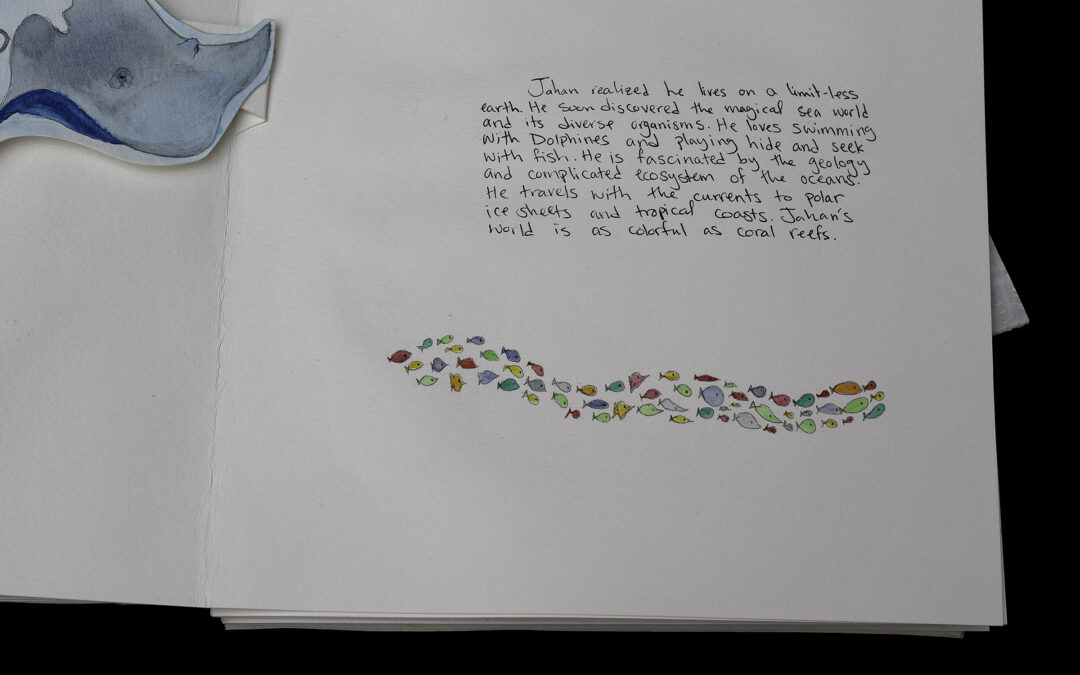 Jahan realized he lives on a limit-less
earth. He soon discovered the magical sea world
and its diverse organisms. He loves swimming
with Dolphines and playing hide and seek
with fish. He is fascinated by the geology
and complicated ecosystem of the oceans.
He travels with the currents to polar
ice sheets and tropical coasts. Jahan's
world is as colorful as coral reefs.